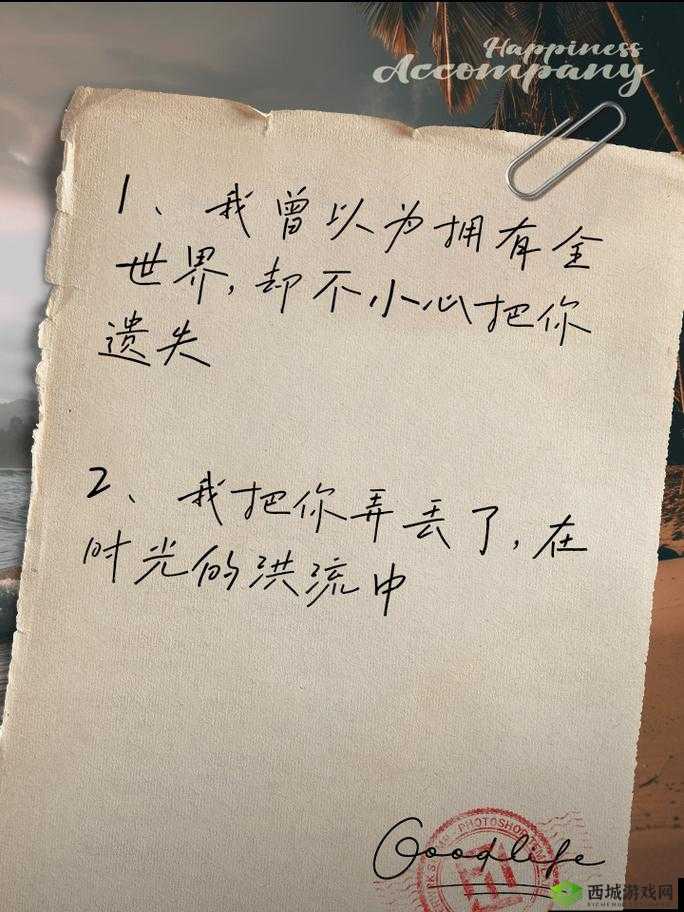 Happiness
Accompany
1、我曾以为拥有全
世界,却不小心把你
遗失
2、我把你弄丢了,在
时光的洪流中
PHOTOSHOP
Goodlife
西城游戏网